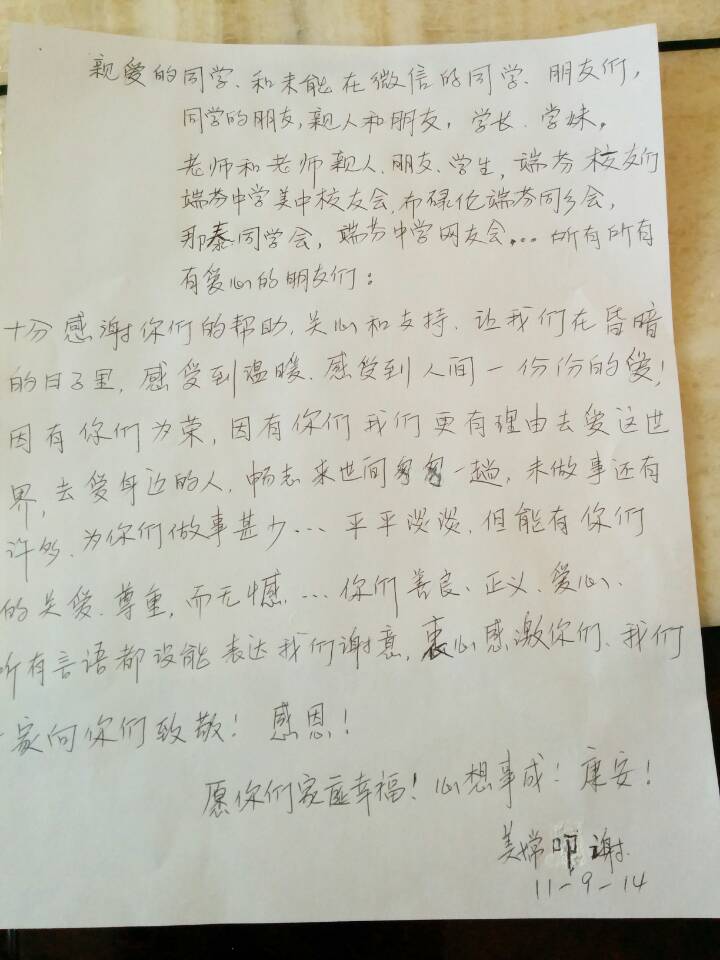 亲爱的同学、和未能在微信的同学、朋友们，
同学的朋友，亲人和朋友，学长、学妹，
老师和老师亲人、朋友、学生，端芬校友们
端芬中学美中校友会、布碌伦端芬同乡会，
那泰同学会，端芬中学网友会…所有所有
有爱心的朋友们：
十分感谢你们的帮助、关心和支持、让我们在昏暗
的日子里，感受到温暖、感受到人间一份份的爱！
因有你们为荣，因有你们我们更有理由去爱这世
界，去爱身边的人、畅志来世间匆匆一趟，未做事还有
许多、为你们做事甚少…平平淡淡、但能有你们
的关爱、尊重，而无憾…你们善良、正义、爱心、
所有言语都没能表达我们谢意，衷心感激你们、我们
一家向你们致敬！感恩！
愿你们家庭幸福！心想事成！康安！
美嫦叩谢
11-9-14